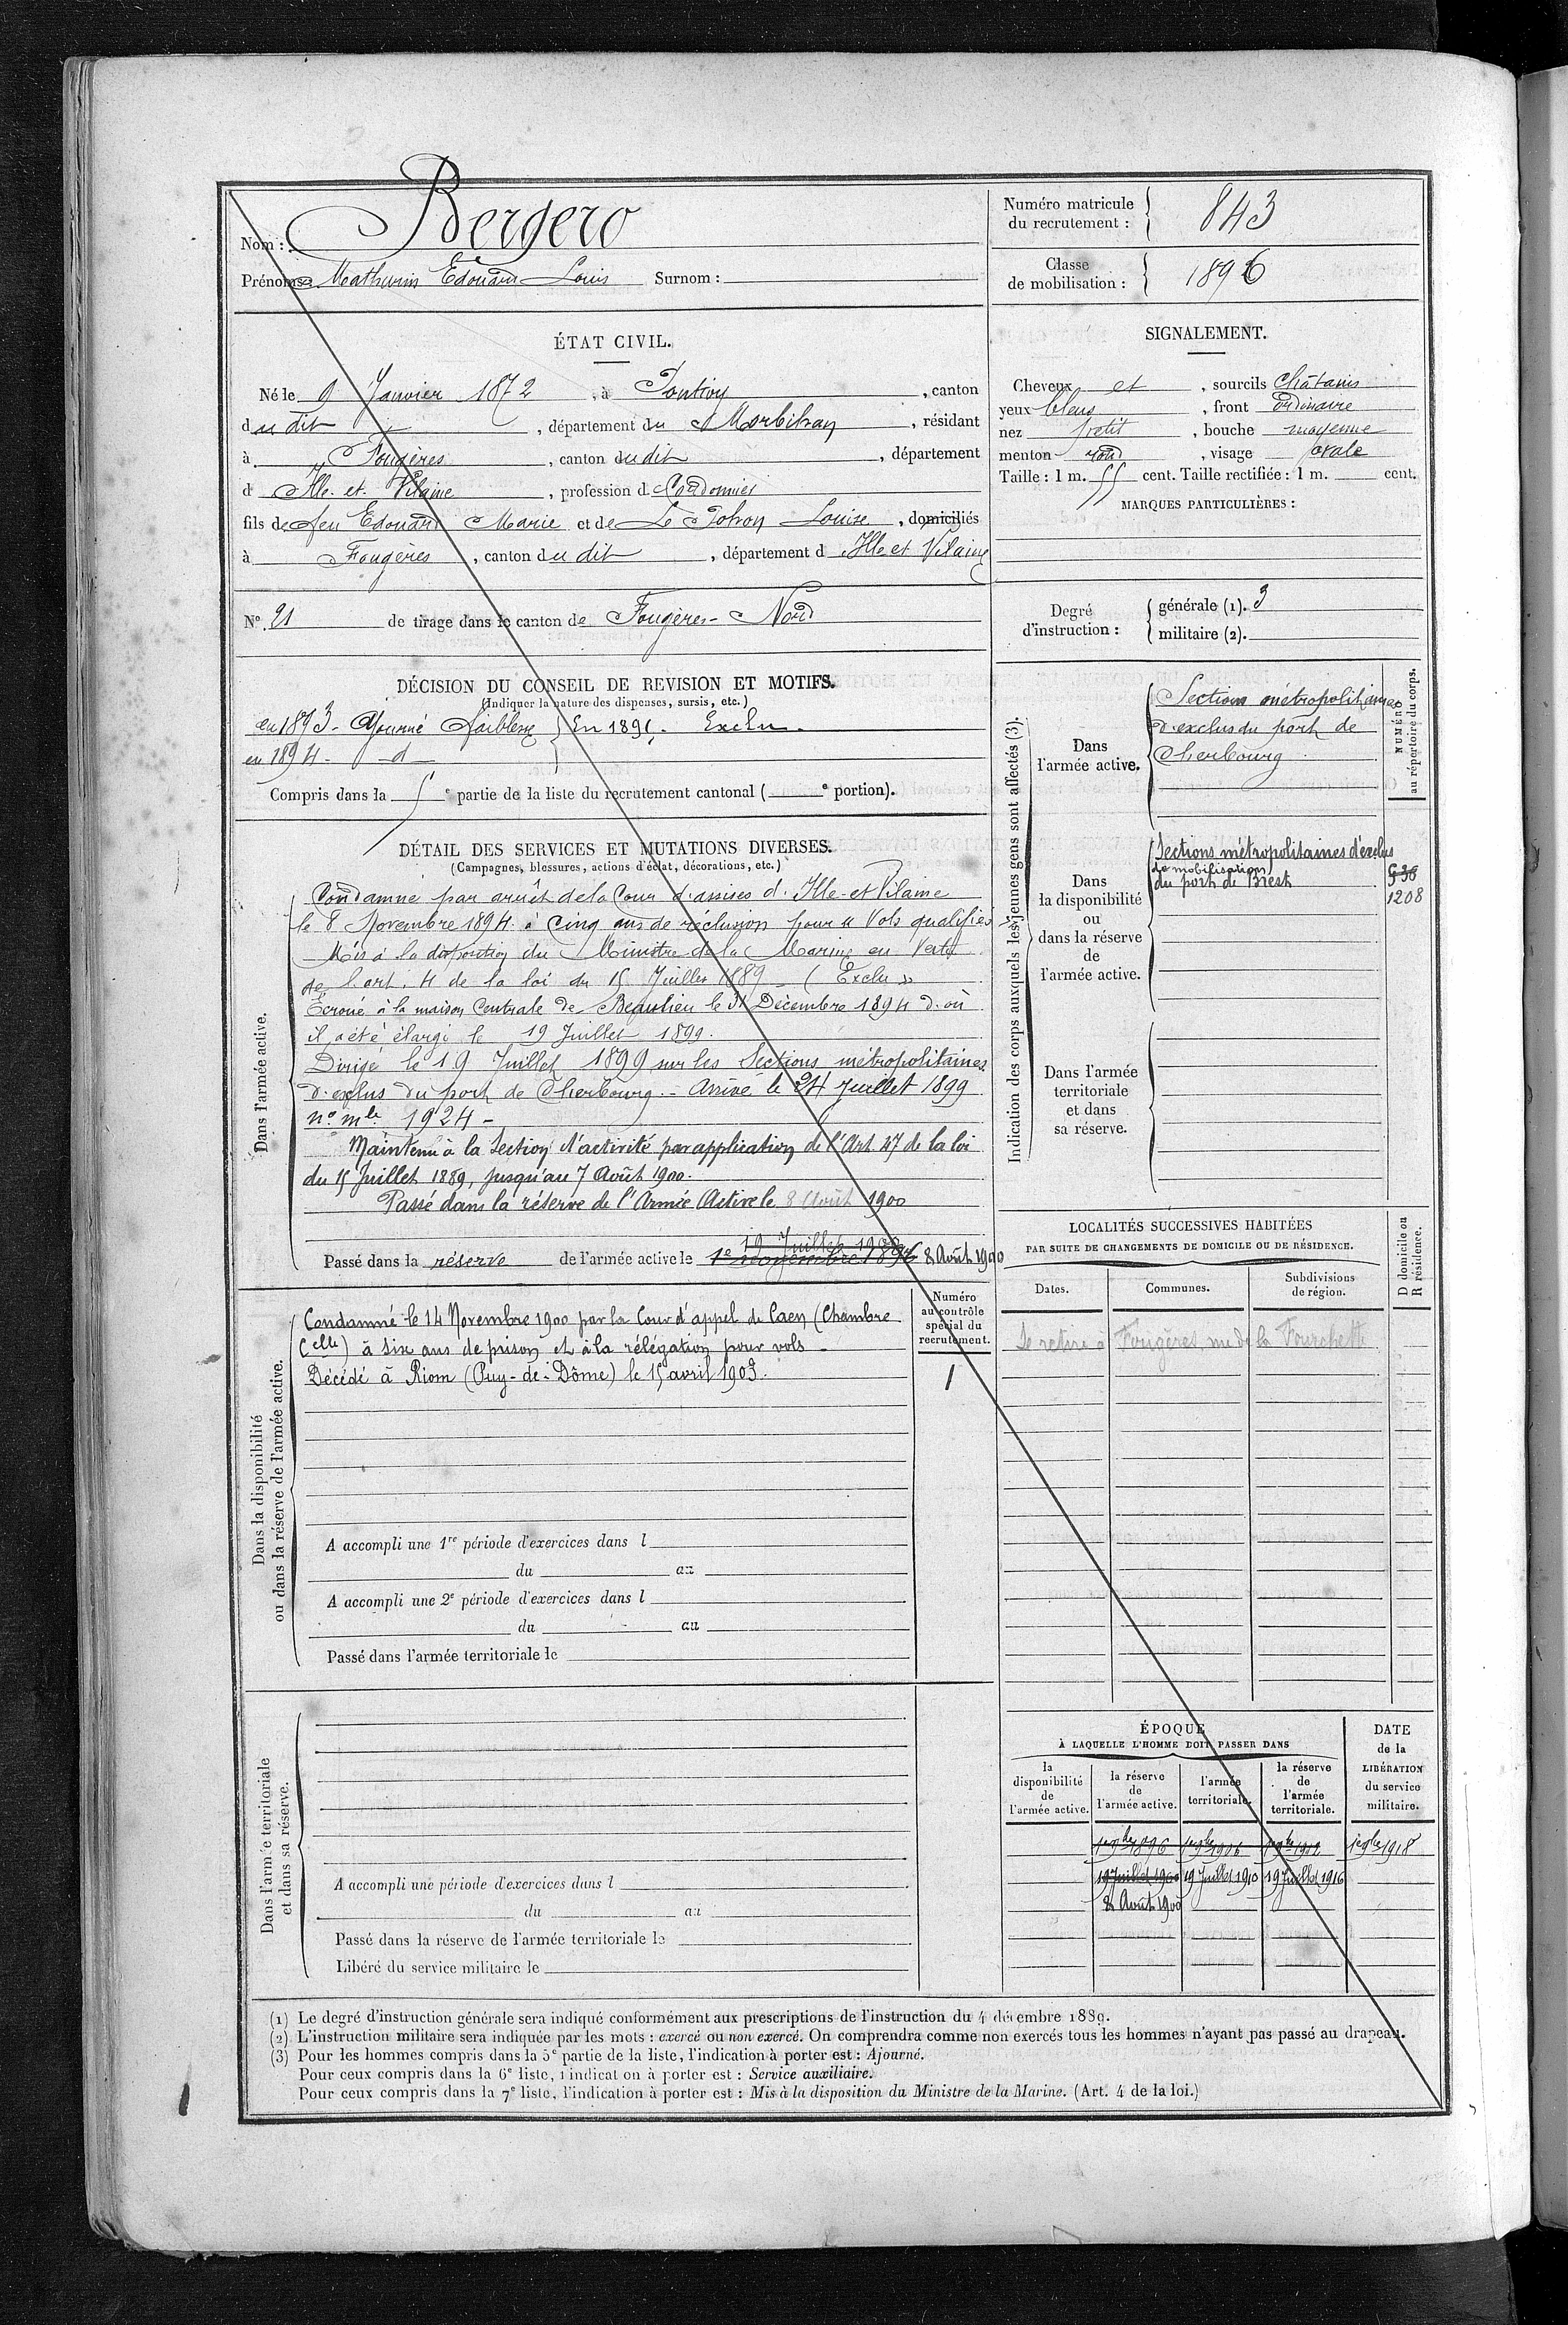 Nom : Bergero
Prénoms : Mathurin Edouard Louis Surnom :
Numéro matricule du recrutement : 843
Classe de mobilisation : 1896
ÉTAT CIVIL.
Né le 9 Janvier 1872, à Pontivy, canton
du dit, département du Morbihan, résidant
à Fougères, canton du dit, département
d'Ille-et-Vilaine, profession de Cordonnier
fils de feu Edouard Marie et de Le Louise, domiciliés
à Fougères, canton du dit, département d'Ille et Vilaine
N° 21 de tirage dans le canton de Fougères-Nord
SIGNALEMENT.
Cheveux et, sourcils châtains
yeux bleus, front ordinaire
nez petit, bouche moyenne
menton rond, visage ovale
Taille : 1 m. 55 cent. Taille rectifiée : 1 m. cent.
MARQUES PARTICULIÈRES :
Degré d'instruction : générale (1). 3
militaire (2).
DÉCISION DU CONSEIL DE REVISION ET MOTIFS.
(Indiquer la nature des dispenses, sursis, etc.)
en 1893 - Ajourné faiblesse } En 1895. Exclu.
en 1894 - d°
Compris dans la 5e partie de la liste du recrutement cantonal ( e portion).
DÉTAIL DES SERVICES ET MUTATIONS DIVERSES.
(Campagnes, blessures, actions d'éclat, décorations, etc.)
Dans l'armée active.
Condamné par arrêt de la Cour d'assises d'Ille-et-Vilaine
le 8 Novembre 1894 à Cinq ans de réclusion pour « Vols qualifiés »
Mis à la disposition du Ministre de la Marine en Vertu
de l'art. 4 de la loi du 15 Juillet 1889 - (Exclu)
Ecroué à la maison Centrale de Beaulieu le 31 Décembre 1894 d'où
il a été élargi le 19 Juillet 1899.
Dirigé le 19 Juillet 1899 sur les Sections métropolitaines
d'exclus du port de Cherbourg. - Arrivé le 24 Juillet 1899
n° mle 1924 -
Maintenu à la Section d'activité par application de l'Art. 47 de la loi
du 15 Juillet 1889, jusqu'au 7 Août 1900.
Passé dans la réserve de l'Armée Active le 8 Août 1900
19 Juillet 1900
Passé dans la réserve de l'armée active le 1er novembre 1896 8 Août 1900
Indication des corps auxquels les jeunes gens sont affectés (3).
NUMÉRO au répertoire du corps.
Dans l'armée active.
Sections métropolitaines
d'exclus du port de
Cherbourg
Dans la disponibilité ou dans la réserve de l'armée active.
Sections métropolitaines d'exclus
de mobilisation
du port de Brest
1208
Dans l'armée territoriale et dans sa réserve.
Dans la disponibilité ou dans la réserve de l'armée active.
Condamné le 14 Novembre 1900 par la Cour d'appel de Caen (Chambre
Celle) à six ans de prison et à la rélégation pour vols -
Décédé à Riom (Puy-de-Dôme) le 15 avril 1903.
Numéro au contrôle spécial du recrutement.
1
A accompli une 1re période d'exercices dans l
du au
A accompli une 2e période d'exercices dans l
du au
Passé dans l'armée territoriale le
LOCALITÉS SUCCESSIVES HABITÉES
PAR SUITE DE CHANGEMENTS DE DOMICILE OU DE RÉSIDENCE.
D domicile ou R résidence.
Dates. Communes. Subdivisions de région.
Se retire à Fougères, rue de la Fourchette
Dans l'armée territoriale et dans sa réserve.
A accompli une période d'exercices dans l
du au
Passé dans la réserve de l'armée territoriale le
Libéré du service militaire le
ÉPOQUE
À LAQUELLE L'HOMME DOIT PASSER DANS
DATE de la LIBÉRATION du service militaire.
la disponibilité de l'armée active. la réserve de l'armée active. l'armée territoriale. la réserve de l'armée territoriale.
1er 9bre 1896 1er 9bre 1906 1er 9bre 1912 1er 9bre 1918
19 Juillet 1900 19 Juillet 1910 19 Juillet 1916
8 Août 1900
(1) Le degré d'instruction générale sera indiqué conformément aux prescriptions de l'instruction du 4 décembre 1889.
(2) L'instruction militaire sera indiquée par les mots : exercé ou non exercé. On comprendra comme non exercés tous les hommes n'ayant pas passé au drapeau.
(3) Pour les hommes compris dans la 5e partie de la liste, l'indication à porter est : Ajourné.
Pour ceux compris dans la 6e liste, l'indication à porter est : Service auxiliaire.
Pour ceux compris dans la 7e liste, l'indication à porter est : Mis à la disposition du Ministre de la Marine. (Art. 4 de la loi.)